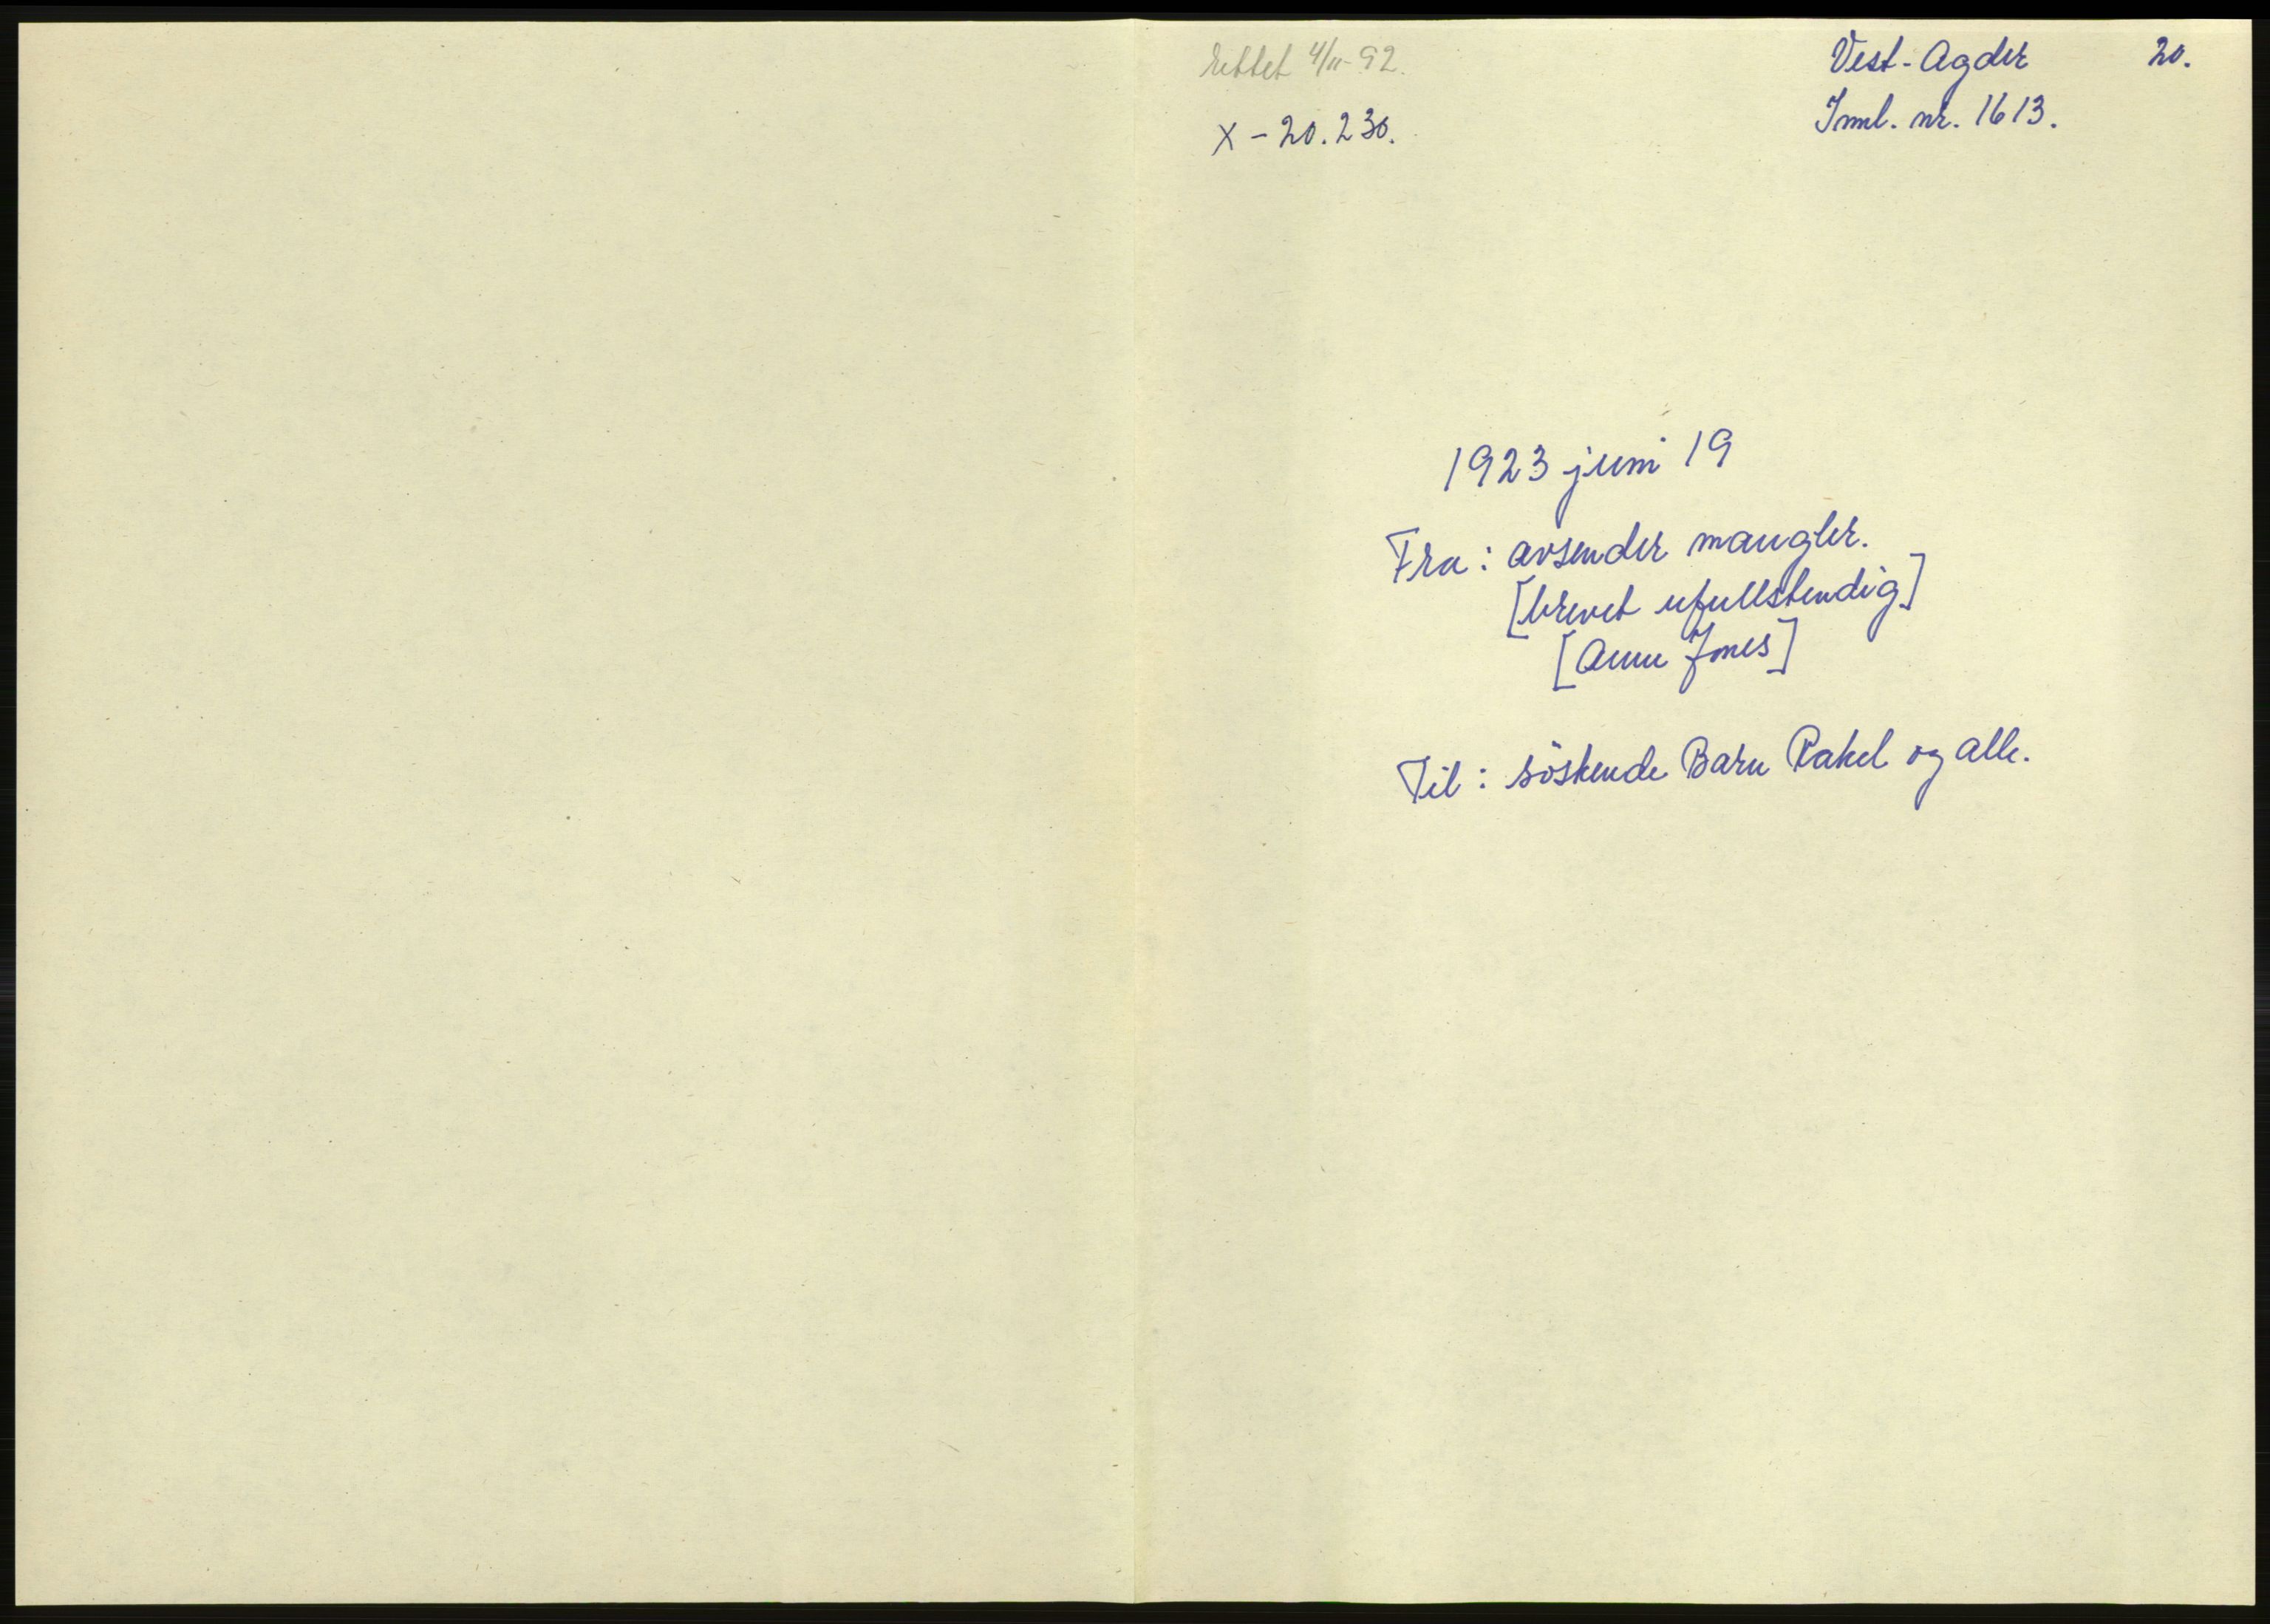 rettet 4/11-92.
X - 20.230.
Vest-Agder 20.
Innl. nr. 1613.
1923 juni 19
Fra: avsender mangler.
[brevet ufullstendig]
[Anne Jones]
Til: söskende Barn Rakel og alle.